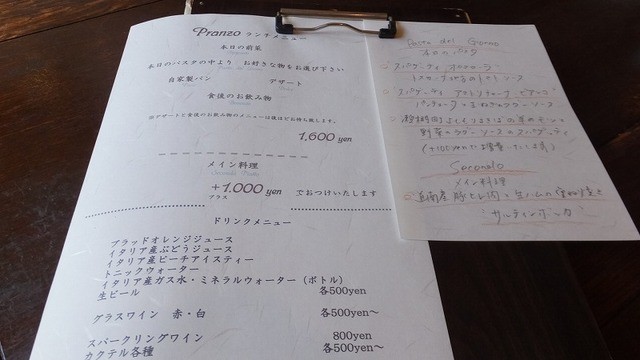 Pranzo ランチメニュー
本日の前菜
本日のパスタの中より お好きな物をお選び下さい
自家製パン デザート
食後のお飲み物
※デザートと食後のお飲み物のメニューは後ほどお持ち致します。
1,600 yen
メイン料理
+1.000 yen でおつけいたします
プラス
ドリンクメニュー
ブラッドオレンジジュース
イタリア産ぶどうジュース
イタリア産ピーチアイスティー
トニックウォーター
イタリア産ガス水・ミネラルウォーター（ボトル）
生ビール 各500yen
グラスワイン 赤・白 各500yen～
スパークリングワイン 800yen
カクテル各種 各500yen～
Pasta del Giorno
本日のパスタ
スパゲーティ
ソース
スパゲーティ アマトリチャーナ ビアンコ
パンチェッタと玉ねぎの ソース
野菜の ソースのスパゲッティ
(+100yenで増量 ます)
Secondo
メイン料理
産豚ヒレ肉と生ハムの 焼き
サルティンボッカ